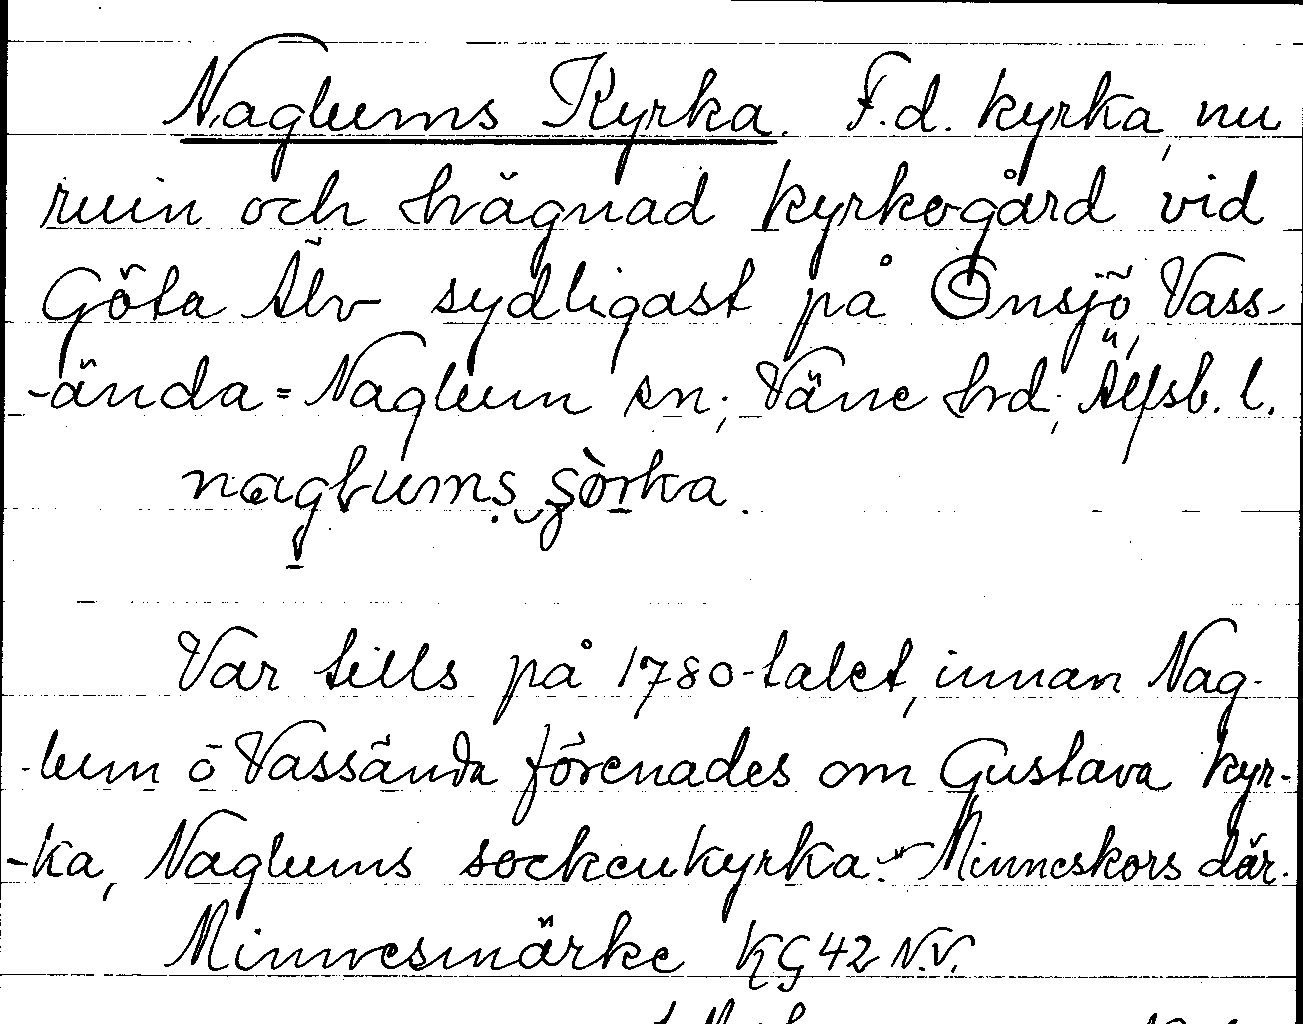 Naglums Kyrka. F.d. kyrka, nu
ruin och hvägnad kyrkogård vid
Göta Älv sydligast på Önsjö, Vass-
-ända=Naglum sn; Väne hrd; Älfsb. l.
Var tills på 1780-talet, innan Nag-
-lum o Vassända förenades om Gustava kyr-
-ka, Naglums sockenkyrka. Minneskors där.
Minnesmärke KG42 N.V.